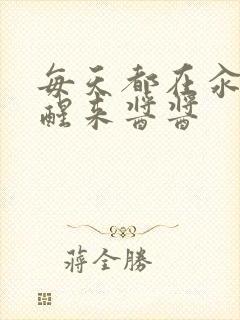 每天都在
醒来酱酱
蔣全勝